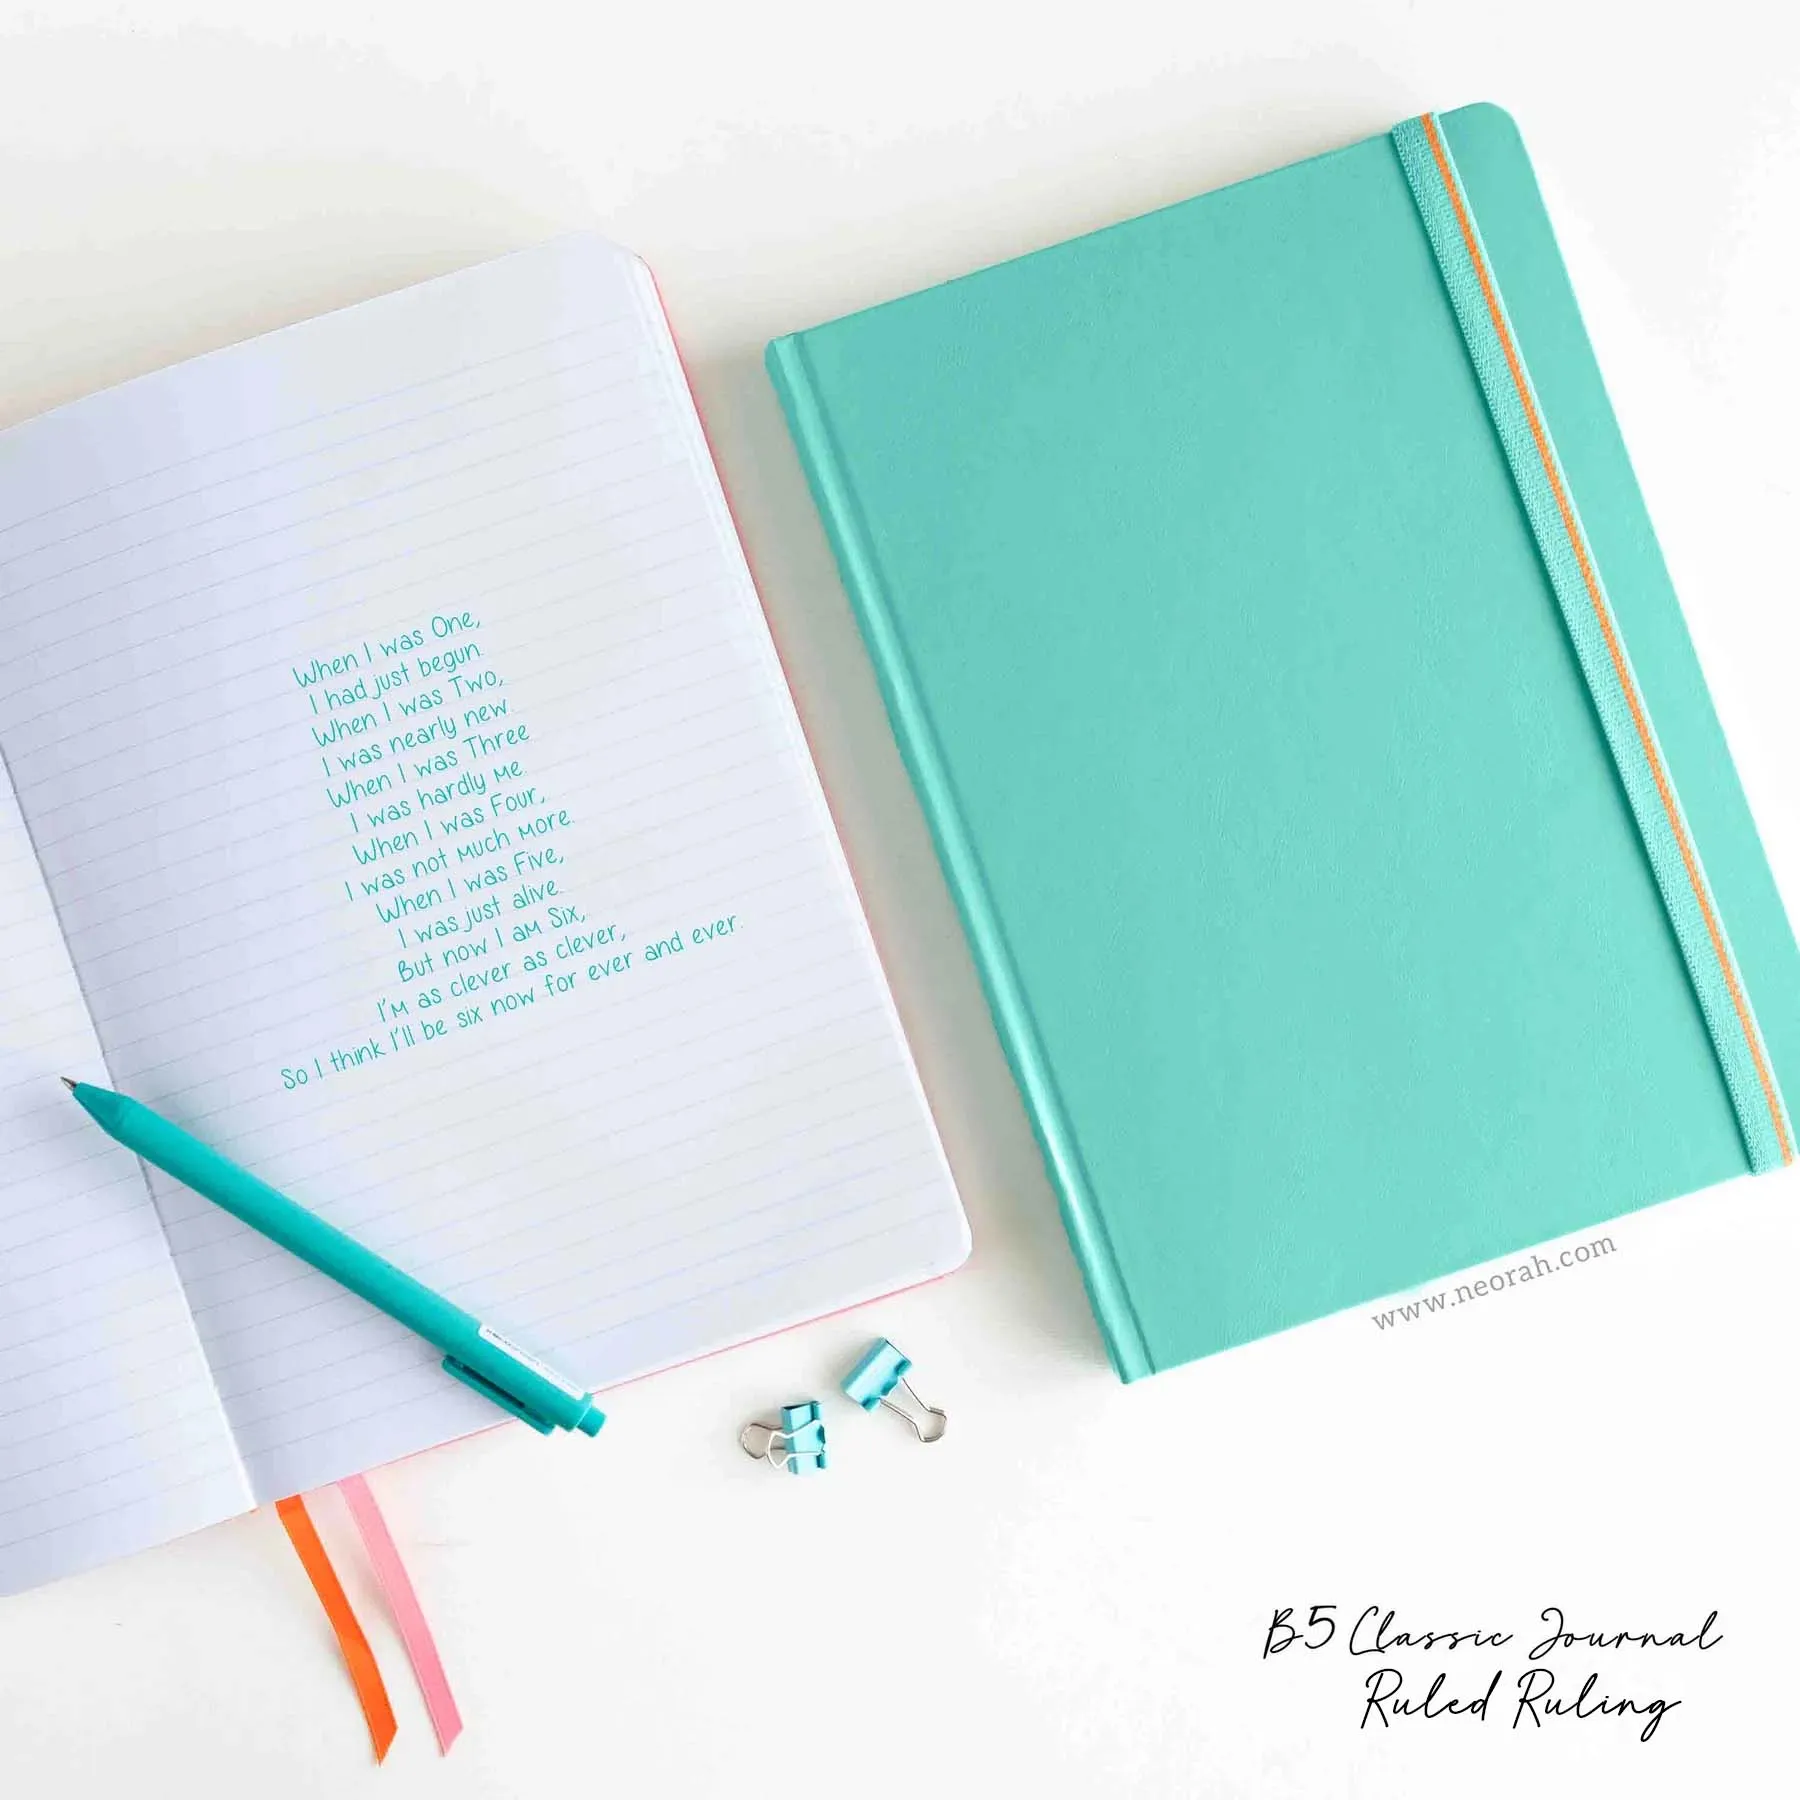 When I was One,
I had just begun.
When I was Two,
I was nearly new.
When I was Three
I was hardly me.
When I was Four,
I was not much more.
When I was Five,
I was just alive.
But now I am Six,
I'm as clever as clever,
So I think I'll be six now for ever and ever.
www.neorah.com
B5 Classic Journal
Ruled Ruling